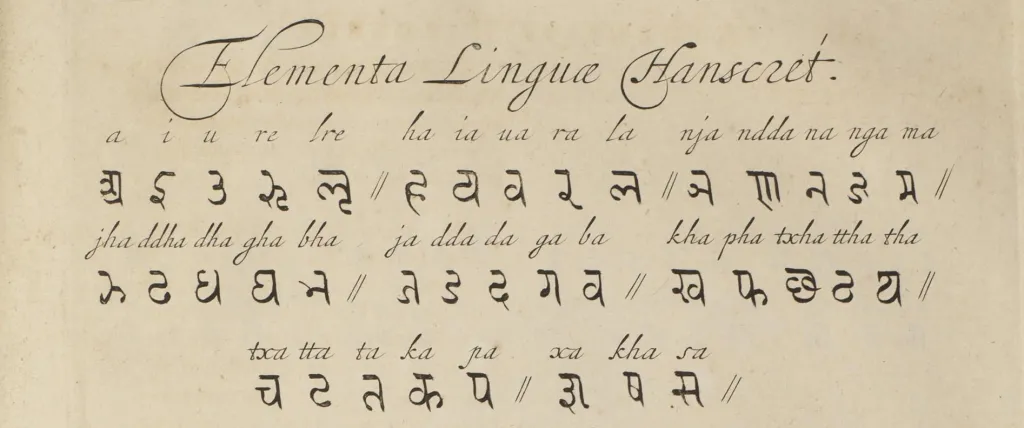 Elementa Linguæ Hanscret.
a i u re lre ha ia ua ra la nja ndda na nga ma
अ इ उ ऋ ऌ // ह य व र ल // ञ ण न ङ म //
jha ddha dha gha bha ja dda da ga ba kha pha txha ttha tha
झ ढ ध घ भ // ज ड द ग ब // ख फ छ ठ थ //
txa tta ta ka pa xa kha sa
च ट त क प // श ष स //